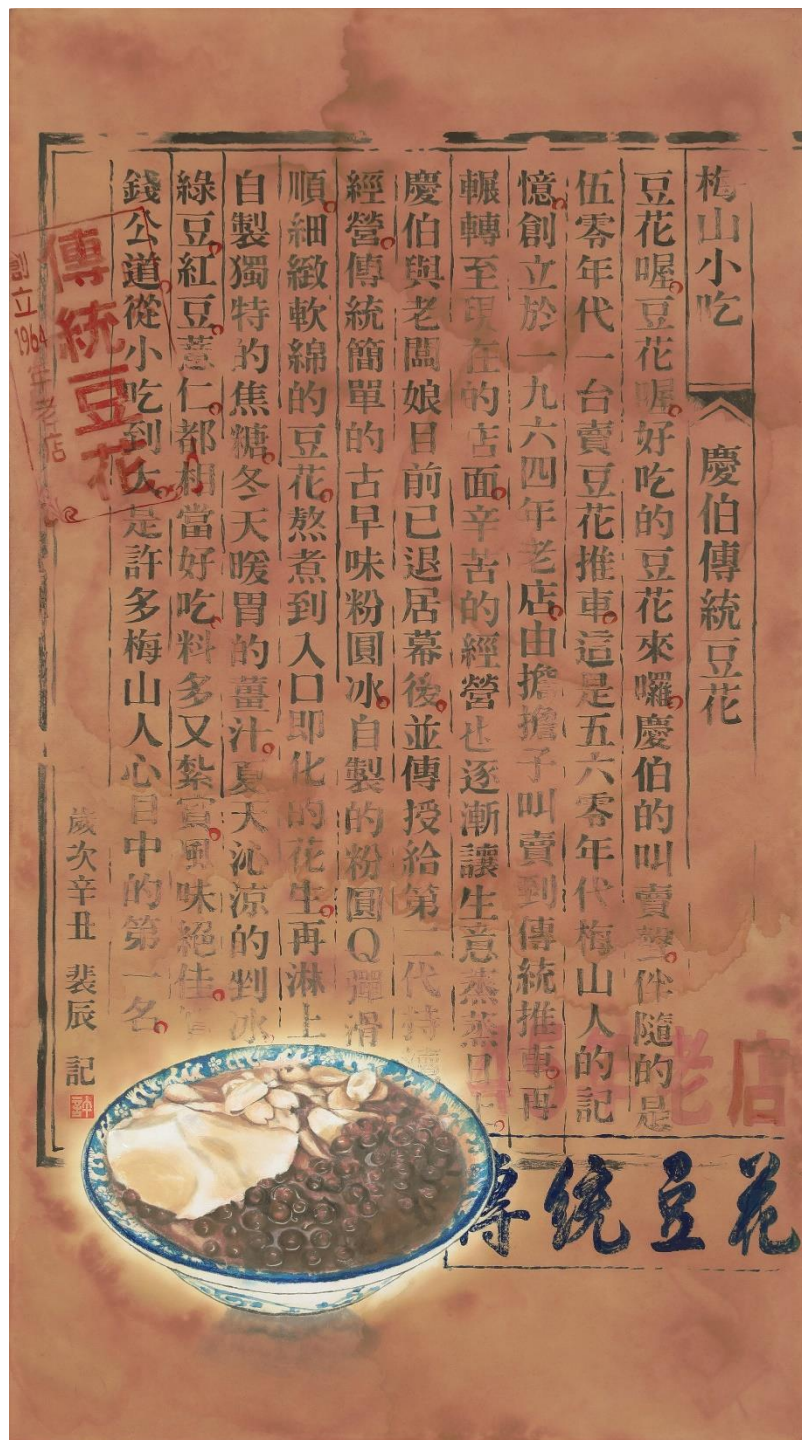 梅山小吃 慶伯傳統豆花
豆花喔。豆花喔。好吃的豆花來囉。慶伯的叫賣聲。伴隨的是
伍零年代一台賣豆花推車。這是五六零年代梅山人的記
憶。創立於一九六四年老店。由擔擔子叫賣到傳統推車。再
輾轉至現在的店面。辛苦的經營也逐漸讓生意蒸蒸日上。
慶伯與老闆娘目前已退居幕後。並傳授給第二代持續
經營。傳統簡單的古早味粉圓冰。自製的粉圓Q彈滑
順。細緻軟綿的豆花。熬煮到入口即化的花生。再淋上
自製獨特的焦糖。冬天暖胃的薑汁。夏天沁涼的剉冰
綠豆。紅豆。薏仁。都相當好吃。料多又紮實。風味絕佳。
錢公道。從小吃到大。是許多梅山人心目中的第一名。
歲次辛丑 裴辰 記
傳統豆花
創立1964年老店
老店
傳統豆花